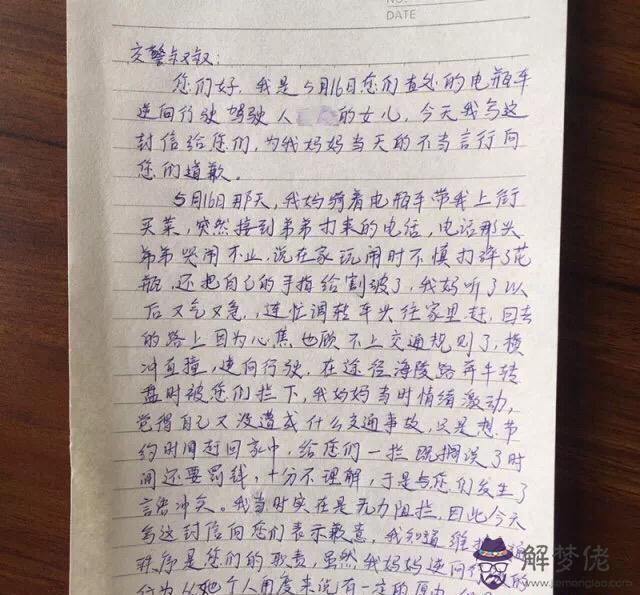 NO.
DATE
交警叔叔:
您们好,我是5月16日您们查处的电瓶车
逆向行驶驾驶人的女儿,今天我写这
封信给您们,为我妈妈当天的不当言行向
您们道歉。
5月16日那天,我妈骑着电瓶车带我上街
买菜,突然接到弟弟打来的电话,电话那头
弟弟哭闹不止,说在家玩闹时不慎打碎了花
瓶,还把自己的手指给割破了,我妈听了以
后又气又急,连忙调转车头往家里赶,回去
的路上因为心焦也顾不上交通规则了,横
冲直撞,逆向行驶,在途径海陵路奔牛转
盘时被您们拦下,我妈妈当时情绪激动,
觉得自己又没造成什么交通事故,只是想节
约时间赶回家中,给您们一拦既搁误了时
间还要罚钱,十分不理解,于是与您们发生了
言语冲突。我当时实在是无力阻拦,因此今天
写这封信向您们表示歉意,我知道维护
秩序是您们的职责,虽然我妈妈逆向行驶的
行为从她个人角度来说有一定的原由
解梦佬
jiemenglao.com